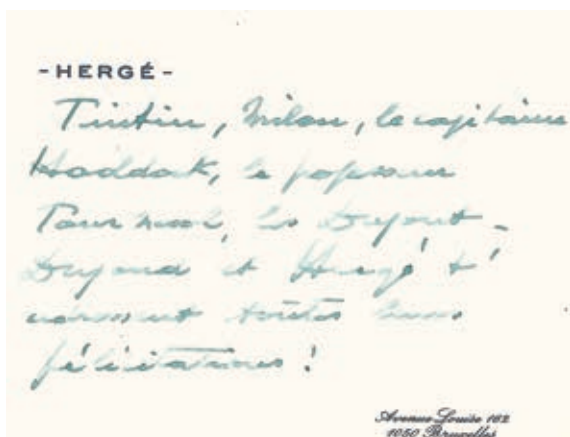 -HERGÉ-
Tintin, Milou, le capitaine
Haddock, le professeur
Tournesol, les Dupont-
Dupond et Hergé t'
adressent toutes leurs
félicitations !
Avenue Louise 162
1050 Bruxelles